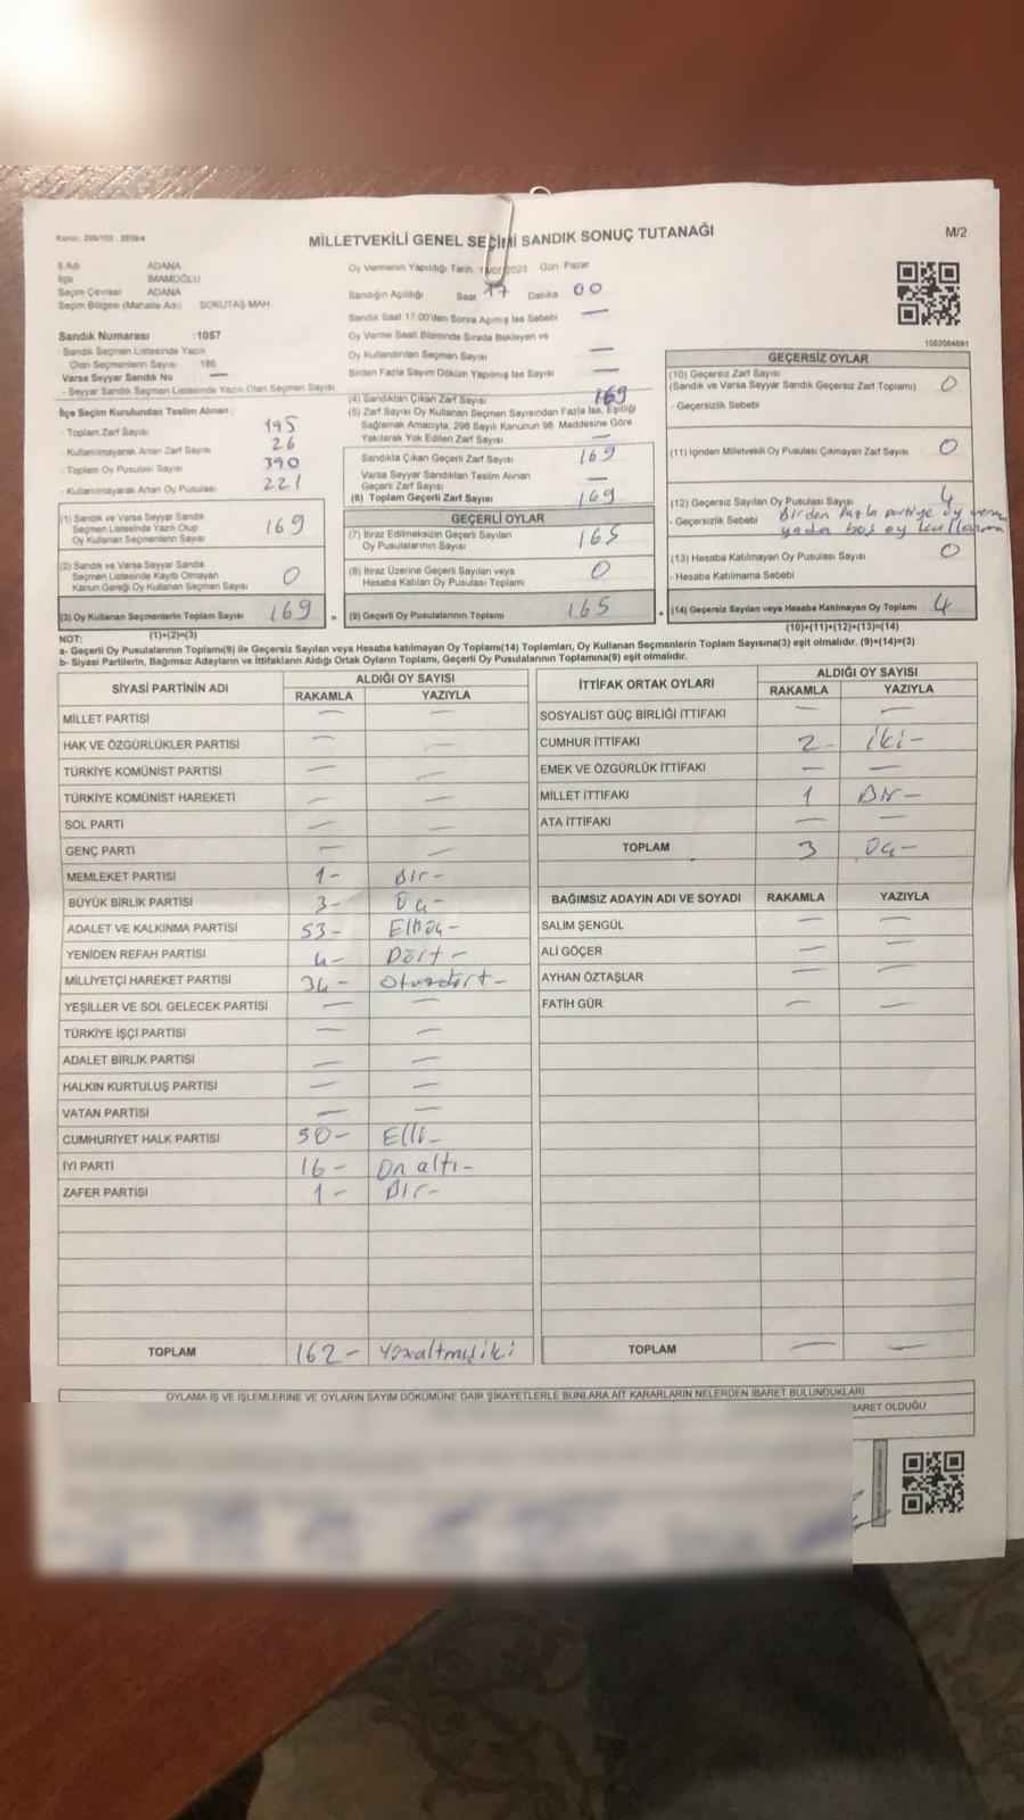 MİLLETVEKİLİ GENEL SEÇİMİ SANDIK SONUÇ TUTANAĞI
M/2
İli/Adı ADANA
İlçe İMAMOĞLU
Seçim Çevresi ADANA
Seçim Bölgesi (Mahalle Adı) SOKUTAŞ MAH.
Sandık Numarası :1057
Sandık Seçmen Listesinde Yazılı
Olan Seçmenlerin Sayısı 186
Varsa Seyyar Sandık No —
- Seyyar Sandık Seçmen Listesinde Yazılı Olan Seçmen Sayısı
İlçe Seçim Kurulundan Teslim Alınan :
- Toplam Zarf Sayısı 195
- Kullanılmayarak Artan Zarf Sayısı 26
- Toplam Oy Pusulası Sayısı 390
- Kullanılmayarak Artan Oy Pusulası 221
(1) Sandık ve Varsa Seyyar Sandık
Seçmen Listesinde Yazılı Olup
Oy Kullanan Seçmenlerin Sayısı 169
(2) Sandık ve Varsa Seyyar Sandık
Seçmen Listesinde Kayıtlı Olmayan
Kanun Gereği Oy Kullanan Seçmen Sayısı 0
(3) Oy Kullanan Seçmenlerin Toplam Sayısı 169
(1)+(2)=(3)
Oy Vermenin Yapıldığı Tarih Gün Pazar
Sandığın Açıldığı Saat 17 Dakika 00
Sandık Saat 17.00'den Sonra Açılmış İse Sebebi —
Oy Verme Saati Bitiminde Sırada Bekleyen ve
Oy Kullandırılan Seçmen Sayısı —
Birden Fazla Sayım Döküm Yapılmış İse Sayısı —
(4) Sandıktan Çıkan Zarf Sayısı 169
(5) Zarf Sayısı Oy Kullanan Seçmen Sayısından Fazla İse, Eşitliği
Sağlamak Amacıyla, 298 Sayılı Kanunun 98. Maddesine Göre
Yakılarak Yok Edilen Zarf Sayısı —
Sandıkta Çıkan Geçerli Zarf Sayısı 169
Varsa Seyyar Sandıktan Teslim Alınan
Geçerli Zarf Sayısı —
(6) Toplam Geçerli Zarf Sayısı 169
GEÇERLİ OYLAR
(7) İtiraz Edilmeksizin Geçerli Sayılan
Oy Pusulalarının Sayısı 165
(8) İtiraz Üzerine Geçerli Sayılan veya
Hesaba Katılan Oy Pusulası Toplamı 0
(9) Geçerli Oy Pusulalarının Toplamı 165
1003084691
GEÇERSİZ OYLAR
(10) Geçersiz Zarf Sayısı
(Sandık ve Varsa Seyyar Sandık Geçersiz Zarf Toplamı) 0
- Geçersizlik Sebebi
(11) İçinden Milletvekili Oy Pusulası Çıkmayan Zarf Sayısı 0
(12) Geçersiz Sayılan Oy Pusulası Sayısı 4
- Geçersizlik Sebebi Birden fazla partiye oy verme
yada boş oy kullanma
(13) Hesaba Katılmayan Oy Pusulası Sayısı 0
- Hesaba Katılmama Sebebi
(14) Geçersiz Sayılan veya Hesaba Katılmayan Oy Toplamı 4
(10)+(11)+(12)+(13)=(14)
NOT:
a- Geçerli Oy Pusulalarının Toplamı(9) ile Geçersiz Sayılan veya Hesaba katılmayan Oy Toplamı(14) Toplamları, Oy Kullanan Seçmenlerin Toplam Sayısına(3) eşit olmalıdır. (9)+(14)=(3)
b- Siyasi Partilerin, Bağımsız Adayların ve İttifakların Aldığı Ortak Oyların Toplamı, Geçerli Oy Pusulalarının Toplamına(9) eşit olmalıdır.
SİYASİ PARTİNİN ADI ALDIĞI OY SAYISI
RAKAMLA YAZIYLA
MİLLET PARTİSİ — —
HAK VE ÖZGÜRLÜKLER PARTİSİ — —
TÜRKİYE KOMÜNİST PARTİSİ — —
TÜRKİYE KOMÜNİST HAREKETİ — —
SOL PARTİ — —
GENÇ PARTİ — —
MEMLEKET PARTİSİ 1- Bir-
BÜYÜK BİRLİK PARTİSİ 3- Üç-
ADALET VE KALKINMA PARTİSİ 53- Elliüç-
YENİDEN REFAH PARTİSİ 4- Dört-
MİLLİYETÇİ HAREKET PARTİSİ 34- Otuzdört-
YEŞİLLER VE SOL GELECEK PARTİSİ — —
TÜRKİYE İŞÇİ PARTİSİ — —
ADALET BİRLİK PARTİSİ — —
HALKIN KURTULUŞ PARTİSİ — —
VATAN PARTİSİ — —
CUMHURİYET HALK PARTİSİ 50- Elli-
İYİ PARTİ 16- On altı-
ZAFER PARTİSİ 1- Bir-
TOPLAM 162- Yüzaltmışiki
İTTİFAK ORTAK OYLARI ALDIĞI OY SAYISI
RAKAMLA YAZIYLA
SOSYALİST GÜÇ BİRLİĞİ İTTİFAKI — —
CUMHUR İTTİFAKI 2- iki-
EMEK VE ÖZGÜRLÜK İTTİFAKI — —
MİLLET İTTİFAKI 1 Bir-
ATA İTTİFAKI — —
TOPLAM 3 Üç-
BAĞIMSIZ ADAYIN ADI VE SOYADI RAKAMLA YAZIYLA
SALİM ŞENGÜL — —
ALİ GÖÇER — —
AYHAN ÖZTAŞLAR — —
FATİH GÜR — —
TOPLAM — —
OYLAMA İŞ VE İŞLEMLERİNE VE OYLARIN SAYIM DÖKÜMÜNE DAİR ŞİKAYETLERLE BUNLARA AİT KARARLARIN NELERDEN İBARET BULUNDUKLARI
İBARET OLDUĞU